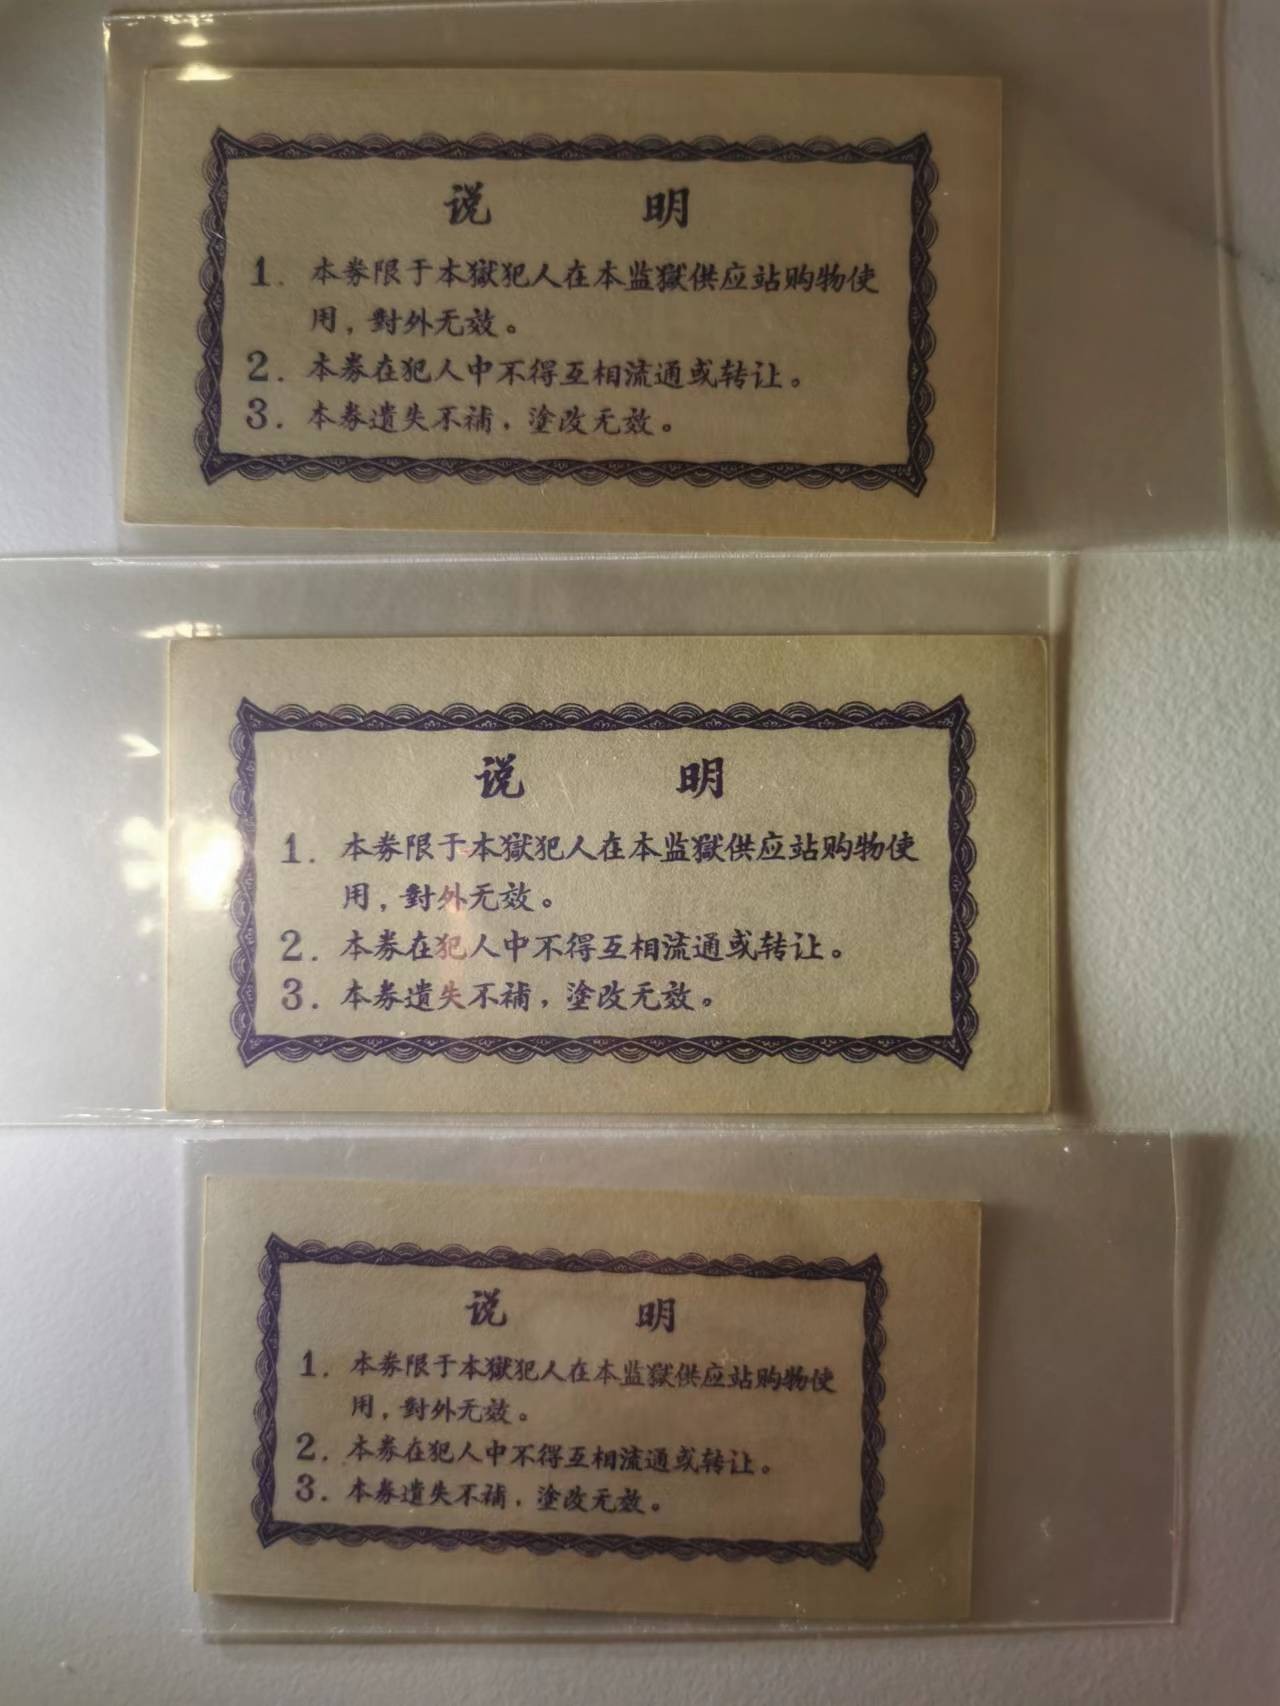 说 明
1. 本券限于本獄犯人在本监獄供应站购物使
用，對外无效。
2. 本券在犯人中不得互相流通或转让。
3. 本券遺失不補，塗改无效。
说 明
1. 本券限于本獄犯人在本监獄供应站购物使
用，對外无效。
2. 本券在犯人中不得互相流通或转让。
3. 本券遺失不補，塗改无效。
说 明
1. 本券限于本獄犯人在本监獄供应站购物使
用，對外无效。
2. 本券在犯人中不得互相流通或转让。
3. 本券遺失不補，塗改无效。